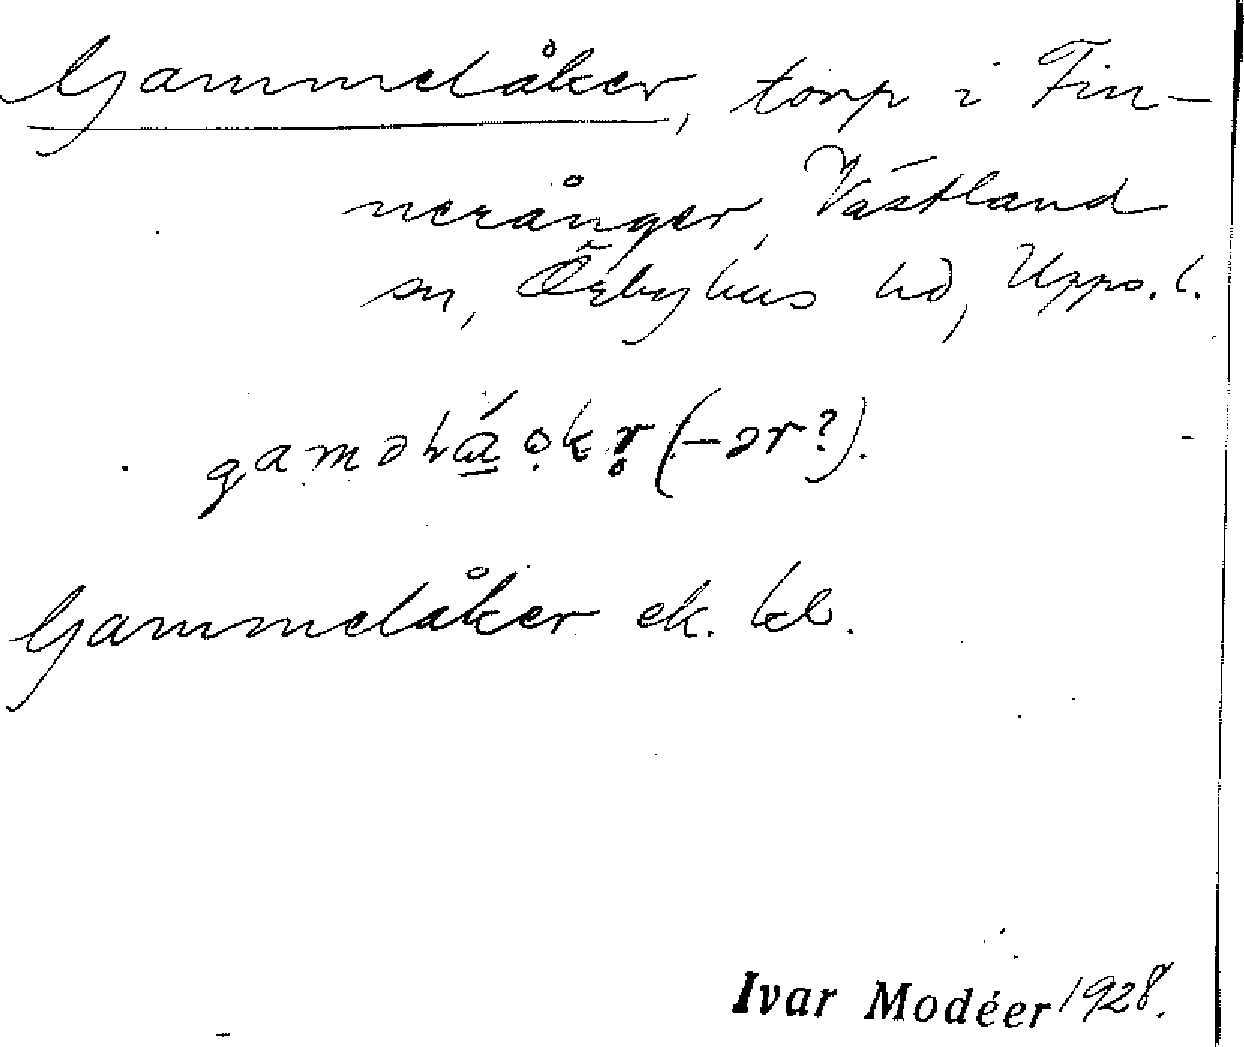 Gammelåker, torp i Fin-
neränger, Västland
sn, Örbyhus hd, Upps. l.
(-ər?).
Gammelåker ek. kb.
Ivar Modéer 1928.